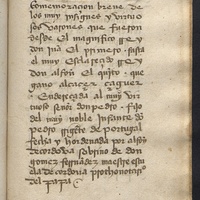 Comemoracion breue de
los muy insignes y virtuo
sos varones que fueron
desde el magnifico Rey
don Jua el primero. fasta
el muy esclarescido Rey
don alfon el quito. que
gano alcaçer çaguer
Endereçada al muy vir
tuoso señor don pedro. fijo
del muy noble Infante do
pedro Regete de Portugal
fecha y hordenada por alfon
de cordoua sobrino de don
gomez fernadez maestre escu
ela de cordoua prothonotario
del papa